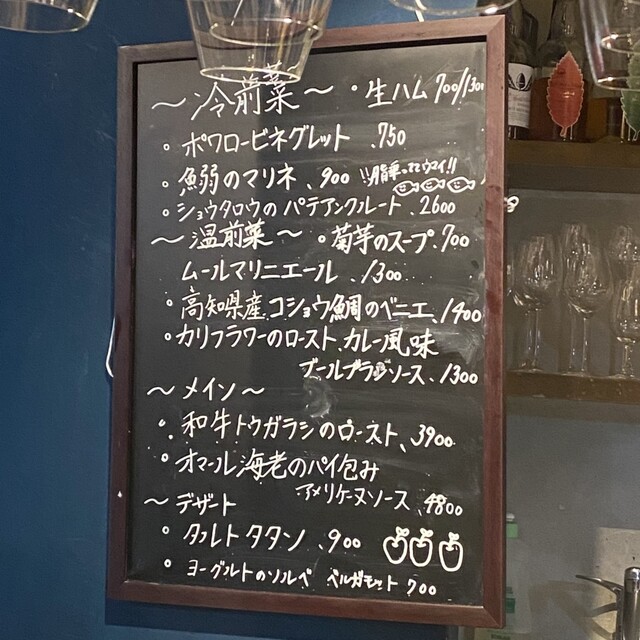 〜冷前菜〜 ・生ハム 700/1300
・ポワロービネグレット .750
・魚弱のマリネ、900 !!脂乗っててウマイ!!
・ショウタロウのパテアンクルート、2600
〜温前菜〜 ・菊芋のスープ.700
ムールマリニエール、1300
・高知県産コショウ鯛のベニエ、1400
・カリフラワーのロースト、カレー風味
ブールブランソース、1300
〜メイン〜
・和牛トウガラシのロースト、3900
・オマール海老のパイ包み
アメリケーヌソース、4800
〜デザート
・タルトタタン、900
・ヨーグルトのソルベ ベルガモット 700